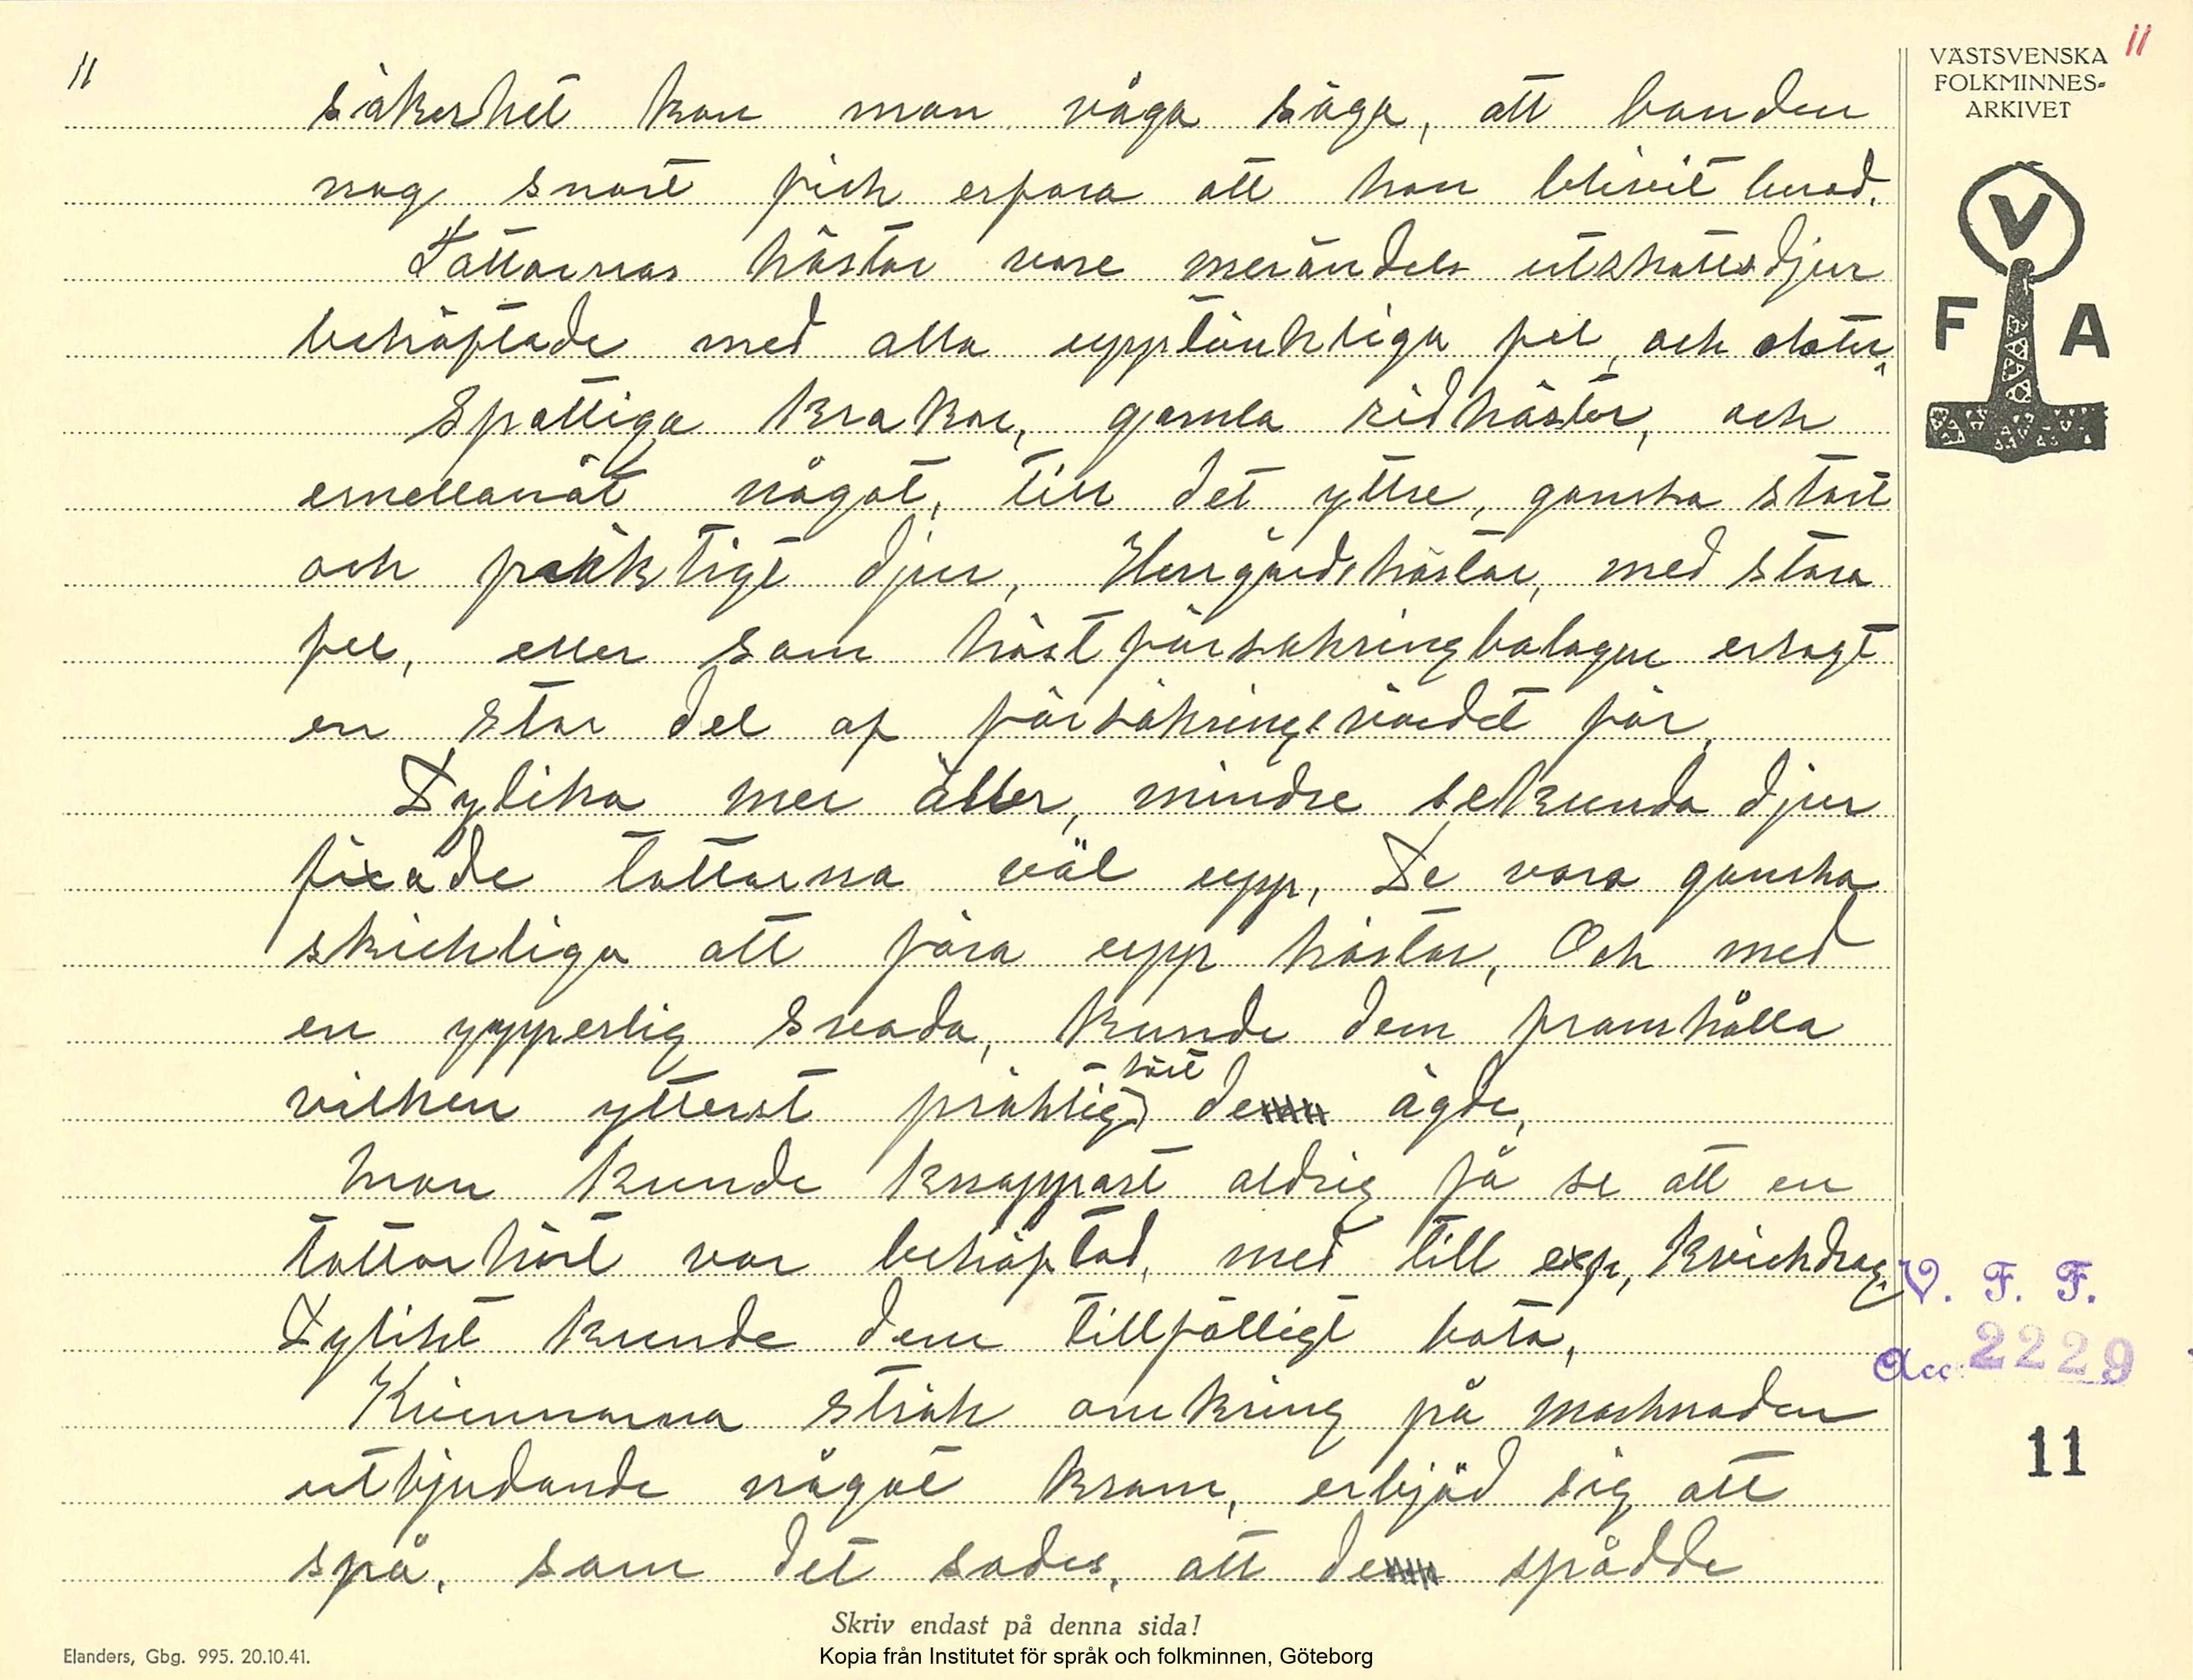 11
säkerhet kan man våga säga, att bonden
nog snart fick erfara att han blivit lurad.
Tattarnas hästar vore merändels utskottsdjur
behäftade med alla upptänkliga fel, och olater,
Spattiga krakar, gamla ridhästar, och
emellanåt något, till det yttre, ganska stort
och präktigt djur, Herrgårdshästar, med stora
fel, eller som hästförsäkringbolagen ersagt
en stor del af försäkringsvärdet för,
Dylika mer äller, mindre sekunda djur
fixade tattarna väl upp, De vara ganska
skickliga att föra upp hästar, Och med
en ypperlig svada, kunde dem framhålla
vilken ytterst präktig häst de ägde,
Man kunde knappast aldrig få se att en
tattarhäst var behäftad, med till exp, kvickdrag,
Dylikt kunde dem tillfälligt bota,
Kvinnorna strök omkring på marknaden
utbjudande något kram, erbjöd sig att
spå, som det sades, att de spådde
Skriv endast på denna sida!
Elanders, Gbg. 995. 20.10.41.
Kopia från Institutet för språk och folkminnen, Göteborg
11
VÄSTSVENSKA
FOLKMINNES-
ARKIVET
V
F A
V. F. F.
Acc. 2229
11